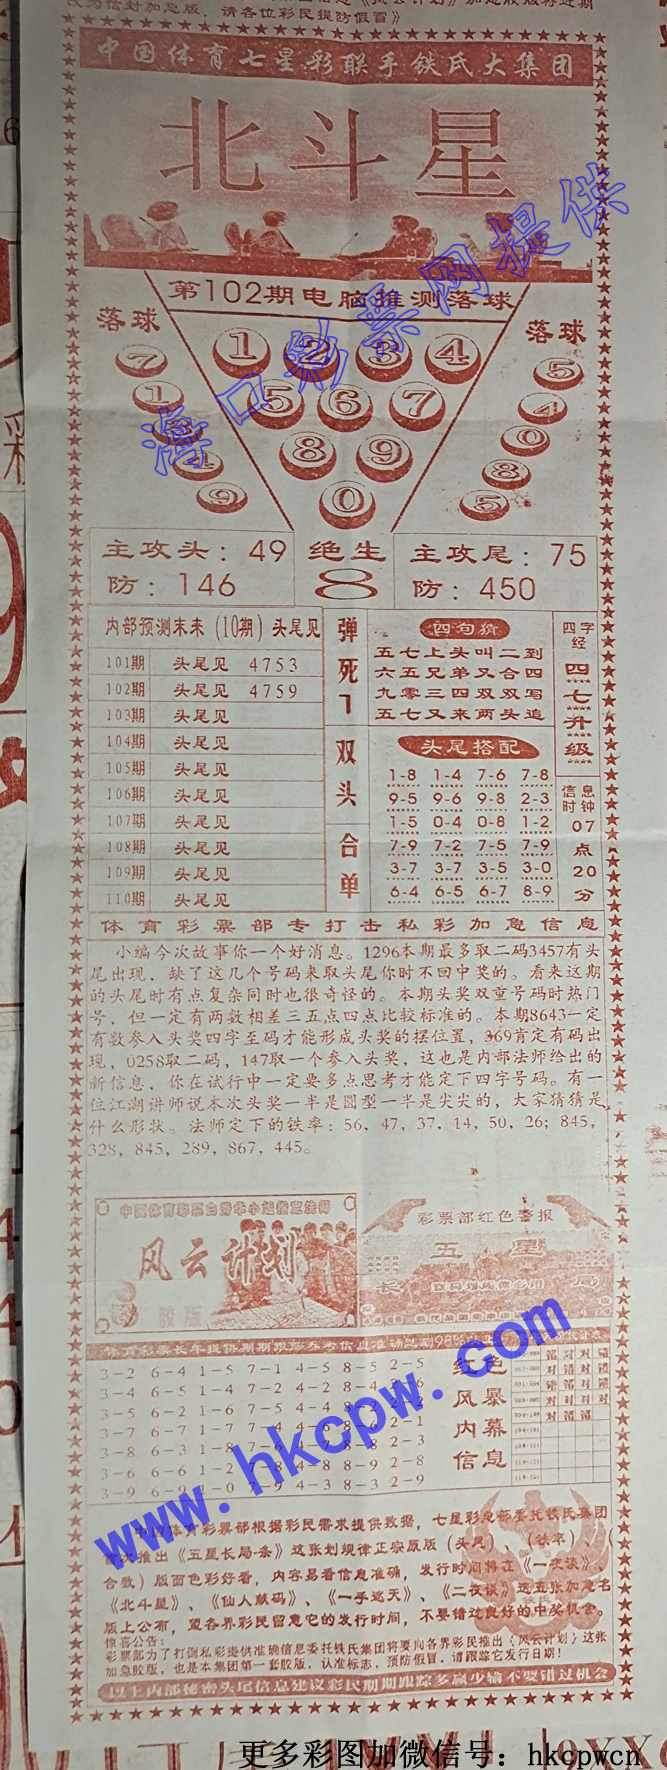 改为信封加急版，请各位彩民提防假冒》
中国体育七星彩联手铁氏大集团
北斗星
第102期电脑推测落球
落球
落球
1 2 3 4
5 6 7
8 9
0
7
1
4
9
5
4
0
8
5
主攻头：49
防：146
绝生
8
主攻尾：75
防：450
内部预测末来(10期)头尾见
101期 头尾见 4753
102期 头尾见 4759
103期 头尾见
104期 头尾见
105期 头尾见
106期 头尾见
107期 头尾见
108期 头尾见
109期 头尾见
110期 头尾见
弹死7双头合单
四句猜
五七上头叫二到
六五兄弟又合四
九零三四双双写
五七又来两头追
头尾搭配
1-8 1-4 7-6 7-8
9-5 9-6 9-8 2-3
1-5 0-4 0-8 1-2
7-9 7-2 7-5 7-9
3-7 3-7 3-5 3-0
6-4 6-5 6-7 8-9
四字经
四七升级
信息时钟
07点20分
体育彩票部专打击私彩加急信息
小编今次故事你一个好消息。1296本期最多取二码3457有头
尾出现，缺了这几个号码来取头尾你时不回中奖的。看来这期
的头尾时有点复杂同时也很奇怪的。本期头奖双重号码时热门
号，但一定有两数相差三五点四点比较标准的。本期8643一定
有数参入头奖四字至码才能形成头奖的摆位置，369肯定有码出
现，0258取二码，147取一个参入头奖，这也是内部法师给出的
新信息，你在试行中一定要多点思考才能定下四字号码。有一
位江湖讲师说本次头奖一半是圆型一半是尖尖的，大家猜猜是
什么形状。法师定下的铁率：56，47，37，14，50，26；845，
328，845，289，867，445。
风云计划
胶版
彩票部红色警报
五星
长
3-2 6-4 1-5 7-1 4-5 8-5 2-5
3-4 6-5 1-4 7-2 8-4
3-5 6-2 1-6 7-5
3-7 6-7 1-7 7-4 2-1
3-8 6-3 1-8 2-3
3-6 6-6 1-2 4-8 8-9 2-8
3-9 6-9 4-3 8-3 2-9
红色
风暴
内幕
信息
中国体育彩票部根据彩民需求提供数据，七星彩总部委托铁氏集团
首次推出《五星长局-条》这张划规律正宗原版（头尾）、（铁率）
合数）版面色彩好看，内容易看信息准确，发行时间将在《一夜谈》、
《北斗星》、《仙人献码》、《一手遮天》、《二夜谈》这五张加急名
版上公布，望各界彩民留意它的发行时间，不要错过良好的中奖机会。
惊喜公告：
彩票部为了打倒私彩提供准确信息委托铁氏集团将要向各界彩民推出《风云计划》这张
加急胶版，也是本集团第一套胶版，认准标志，预防假冒，请跟踪它发行日期！
以上内部秘密头尾信息建议彩民期期跟踪多赢少输不要错过机会
海口彩票网提供
www.hkcpw.com
更多彩图加微信号：hkcpwcn